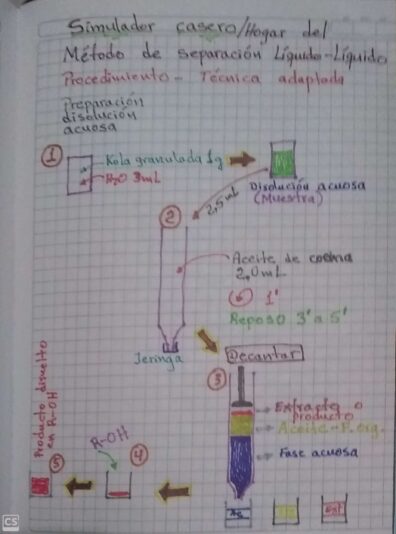 Simulador casero/Hogar del
Método de separación Líquido-Líquido
Procedimiento - Técnica adaptada
Preparación
disolución
acuosa
1
Kola granulada 1g
H2O 3mL
Disolución acuosa
(Muestra)
2,5mL
2
Aceite de cocina
2,0mL
1'
Reposo 3' a 5'
Jeringa
Decantar
3
Extracto o
Producto
Aceite - F. org.
Fase acuosa
R-OH
4
5
Producto disuelto
en R-OH
Ac
Ext
CS